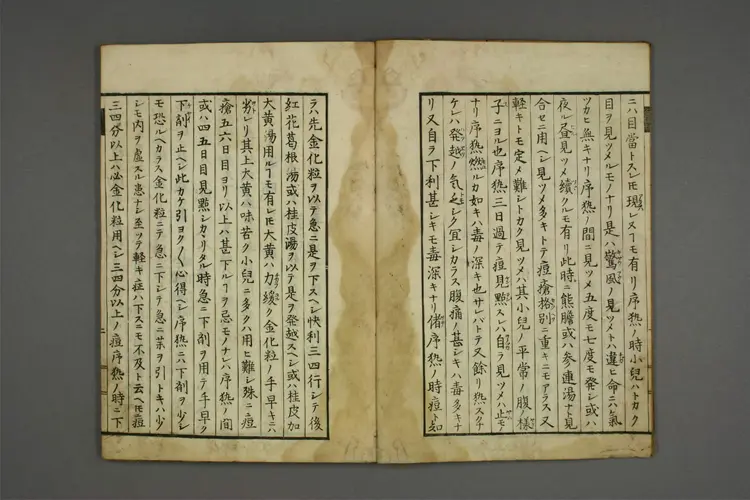 ニハ目當トスレ𪜈現レスーモ有リ序熱ノ時小兒ハトカク
目ヲ見ツメルモノナリ是ハ驚風ノ見ツメトハ違ヒ命ニハ氣
ツカヒ無キナリ序熱ノ間ニ見ツメ五度モ七度モ發シ或ハ
夜ル昼見ツメ續クルモ有リ此時ニ熊膽或ハ参連湯ナト見
合セニ用ヘシ見ツメ多キトテ痘瘡格別ニ重キニモアラス又
軽キトモ定メ難シトカク見ツメハ其小兒ノ平常ノ腹様
子ニヨル也序熱三日過テ痘見點スレハ自ラ見ツメハ止モノ
ナリ序熱燃ルカ如キハ毒ノ深キ也サレハトテ又餘リ熱スクナ
ケレハ発越ノ気乏シク冝シカラス腹痛ノ甚シキハ毒多キナ
リ又自ラ下利甚シキモ毒深キナリ偖序熱ノ時痘ト知
ラハ先金化粒ヲ以テ急ニ是ヲ下スヘシ快利三四行シテ後
紅花葛根湯或ハ桂皮湯ヲ以テ是ヲ発越スヘシ或ハ桂皮加
大黄湯用ルーモ有レ𪜈大黄ハ力緩ク金化粒ノ手早キニハ
劣レリ其上大黄ハ味苦ク小兒ニ多クハ用ヒ難シ殊ニ痘
瘡五六日目ヨリ以上ハ甚下ルーヲ忌モノナレハ序熱ノ間
或ハ四五日目見點シカヽリタル時急ニ下剤ヲ用テ手早ク
下シ剤ヲ止ヘシ此カケ引ヨク〱心得ヘシ序熱ニハ下剤ヲ少シ
モ恐ルヘカラス金化粒ニテ急ニ下シテ急ニ薬ヲ引トキハ少
シモ内ヲ虚スル患ナシ至ツテ軽キ症ハ下スニモ不及ト云ヘ𪜈痘
三四分以上ハ必金化粒用ヘシ三四分以上ノ痘序熱ノ時ニ下